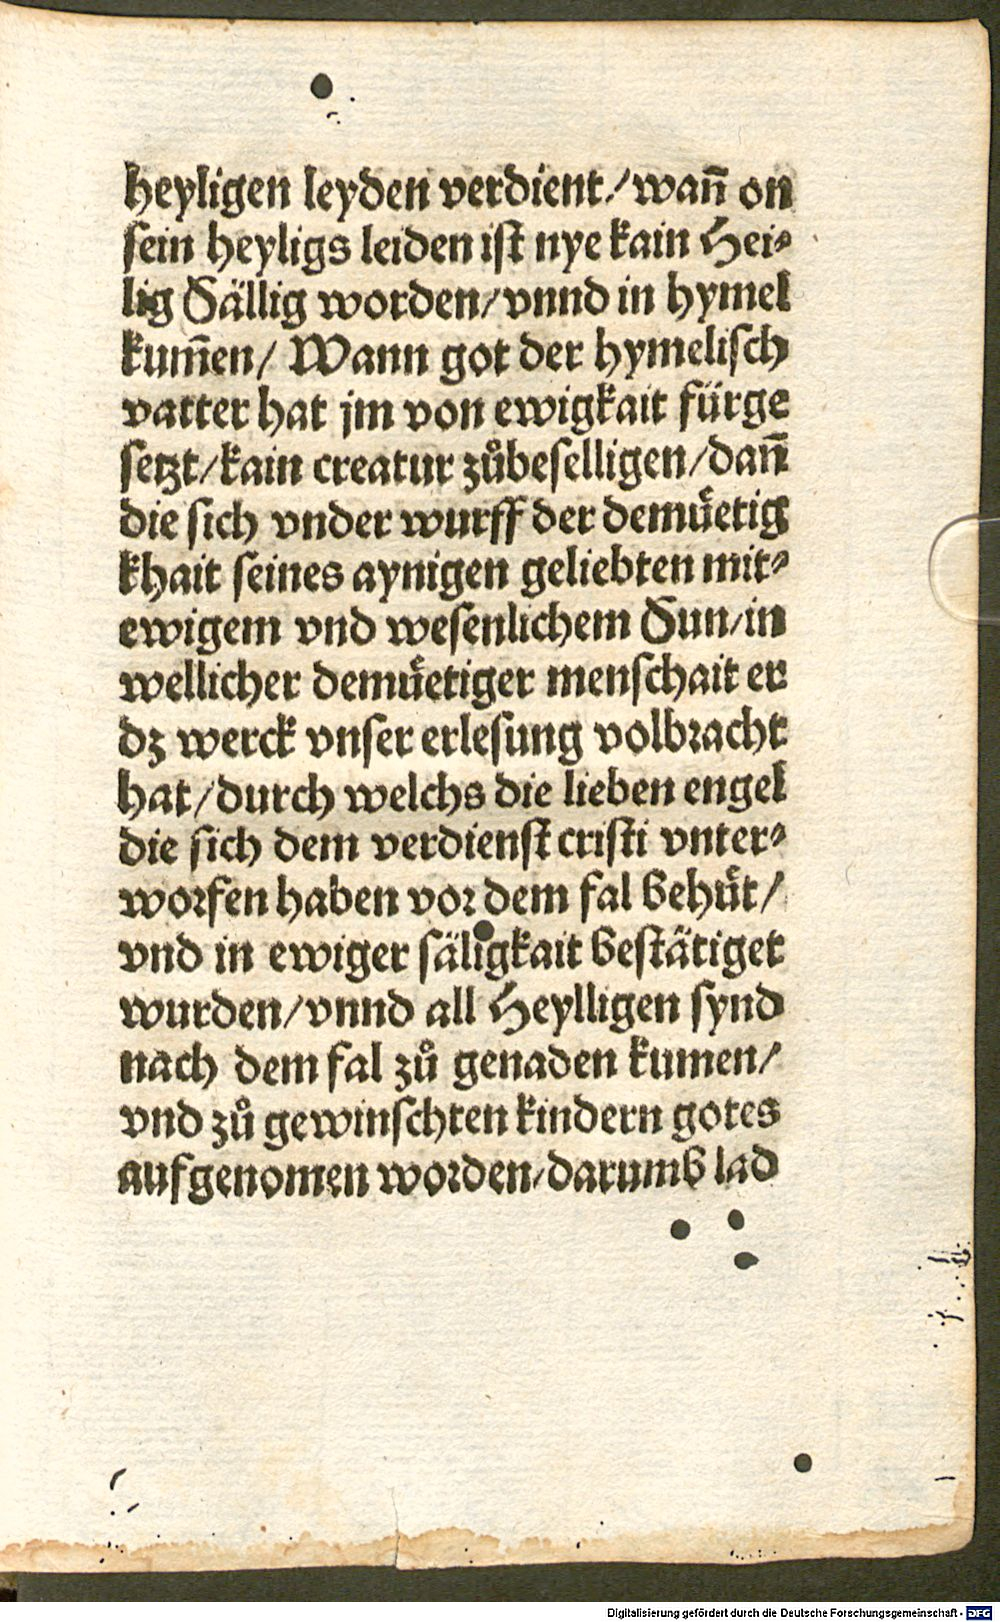 heyligen leyden verdient/ wañ on
sein heyligs leiden ist nye kain Hei⸗
lig Sällig worden/ vnnd in hymel
kum̃en/ Wann got der hymelisch
vatter hat jm von ewigkait fürge
setzt/ kain creatur zůbeselligen/ dañ
die sich vnder wurff der demuͤetig
khait seines aynigen geliebten mit⸗
ewigem vnd wesenlichem Sun/ in
wellicher demuͤetiger menschait er
dz werck vnser erlesung volbracht
hat/ durch welchs die lieben engel
die sich dem verdienst cristi vnter⸗
worfen haben vor dem fal behuͤt/
vnd in ewiger säligkait bestätiget
wurden/ vnnd all Heylligen synd
nach dem fal zů genaden kumen/
vnd zů gewinschten kindern gotes
aufgenomen worden/ darumb lad
Digitalisierung gefördert durch die Deutsche Forschungsgemeinschaft - DFG